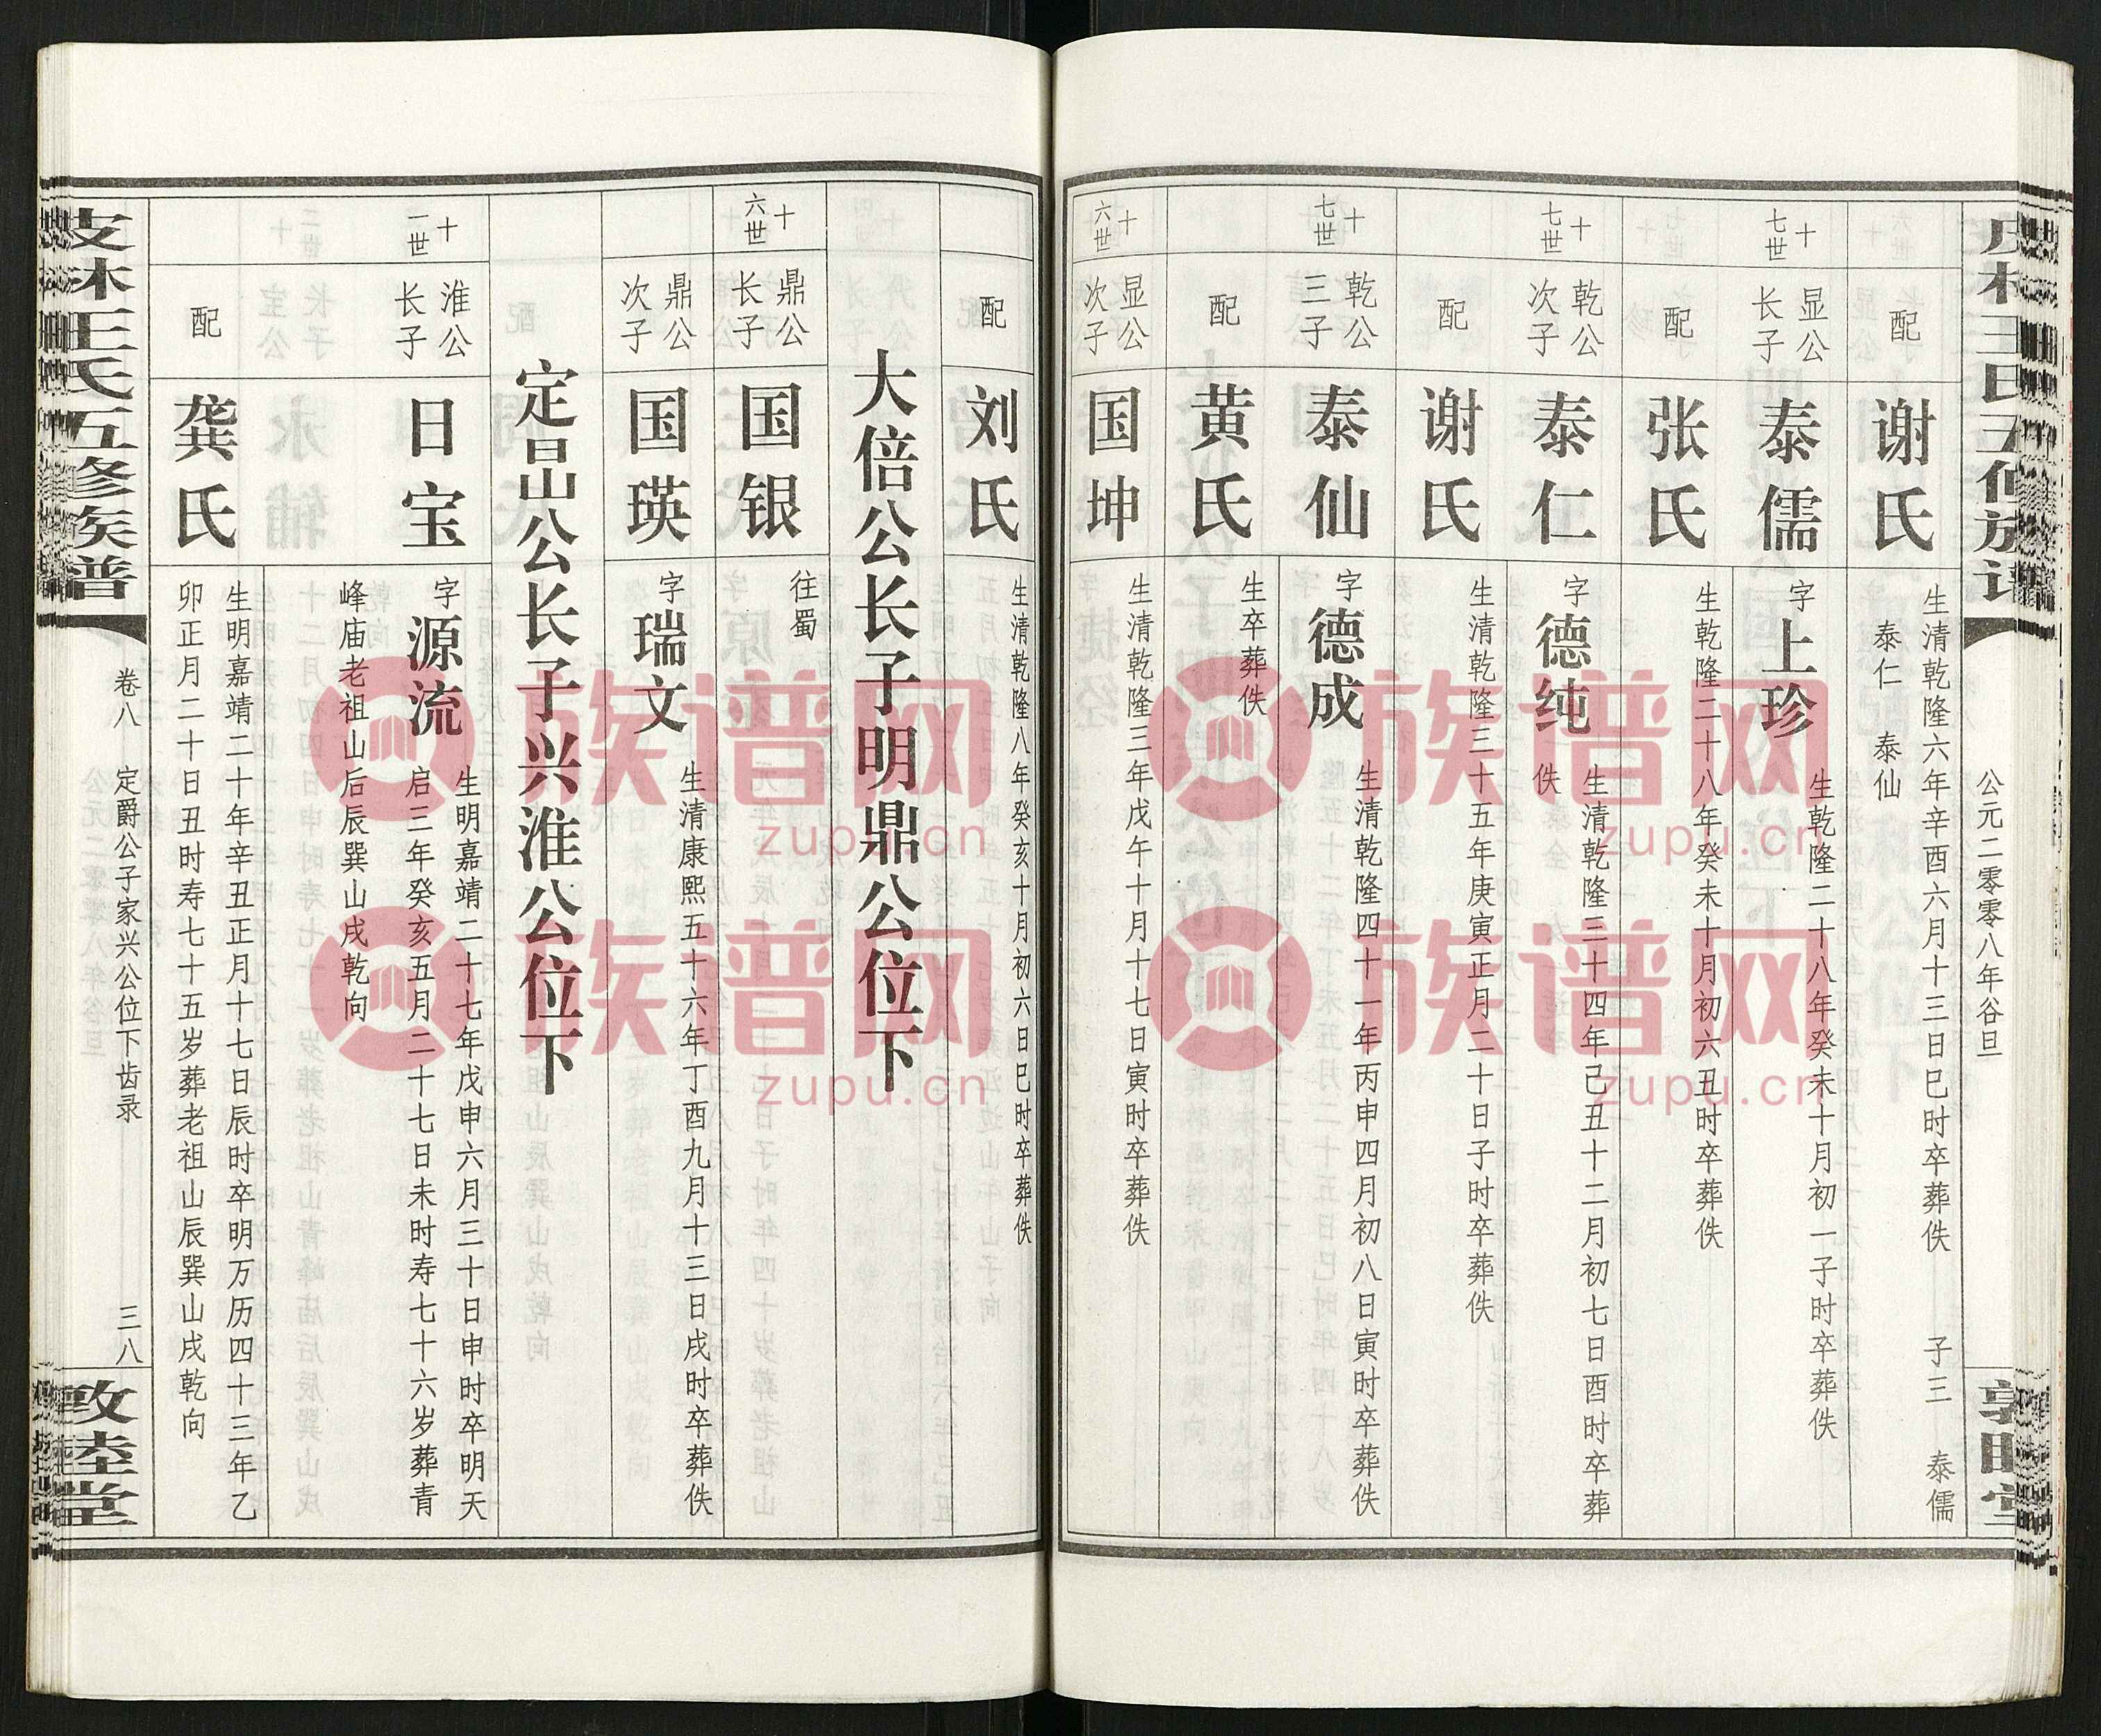 公元二零零八年谷旦
配
谢氏
生清乾隆六年辛酉六月十三日巳时卒葬佚 子三 泰儒
泰仁 泰仙
十七世
显公长子
泰儒
字上珍
生乾隆二十八年癸未十月初一子时卒葬佚
配
张氏
生乾隆二十八年癸未十月初六丑时卒葬佚
十七世
乾公次子
泰仁
字德纯
生清乾隆三十四年己丑十二月初七日酉时卒葬
佚
配
谢氏
生清乾隆三十五年庚寅正月二十日子时卒葬佚
十七世
乾公三子
泰仙
字德成
生清乾隆四十一年丙申四月初八日寅时卒葬佚
配
黄氏
生卒葬佚
十六世
显公次子
国坤
生清乾隆三年戊午十月十七日寅时卒葬佚
配
刘氏
生清乾隆八年癸亥十月初六日巳时卒葬佚
大倍公长子明鼎公位下
十六世
鼎公长子
国银
往蜀
鼎公次子
国瑛
字瑞文
生清康熙五十六年丁酉九月十三日戌时卒葬佚
定昌公长子兴淮公位下
十一世
淮公长子
日宝
字源流
生明嘉靖二十七年戊申六月三十日申时卒明天
启三年癸亥五月二十七日未时寿七十六岁葬青
峰庙老祖山后辰巽山戌乾向
配
龚氏
生明嘉靖二十年辛丑正月十七日辰时卒明万历四十三年乙
卯正月二十日丑时寿七十五岁葬老祖山辰巽山戌乾向
王氏五修族谱
卷八 定爵公子家兴公位下齿录 三八
族谱网
zupu.cn
族谱网
zupu.cn
族谱网
zupu.cn
族谱网
zupu.cn